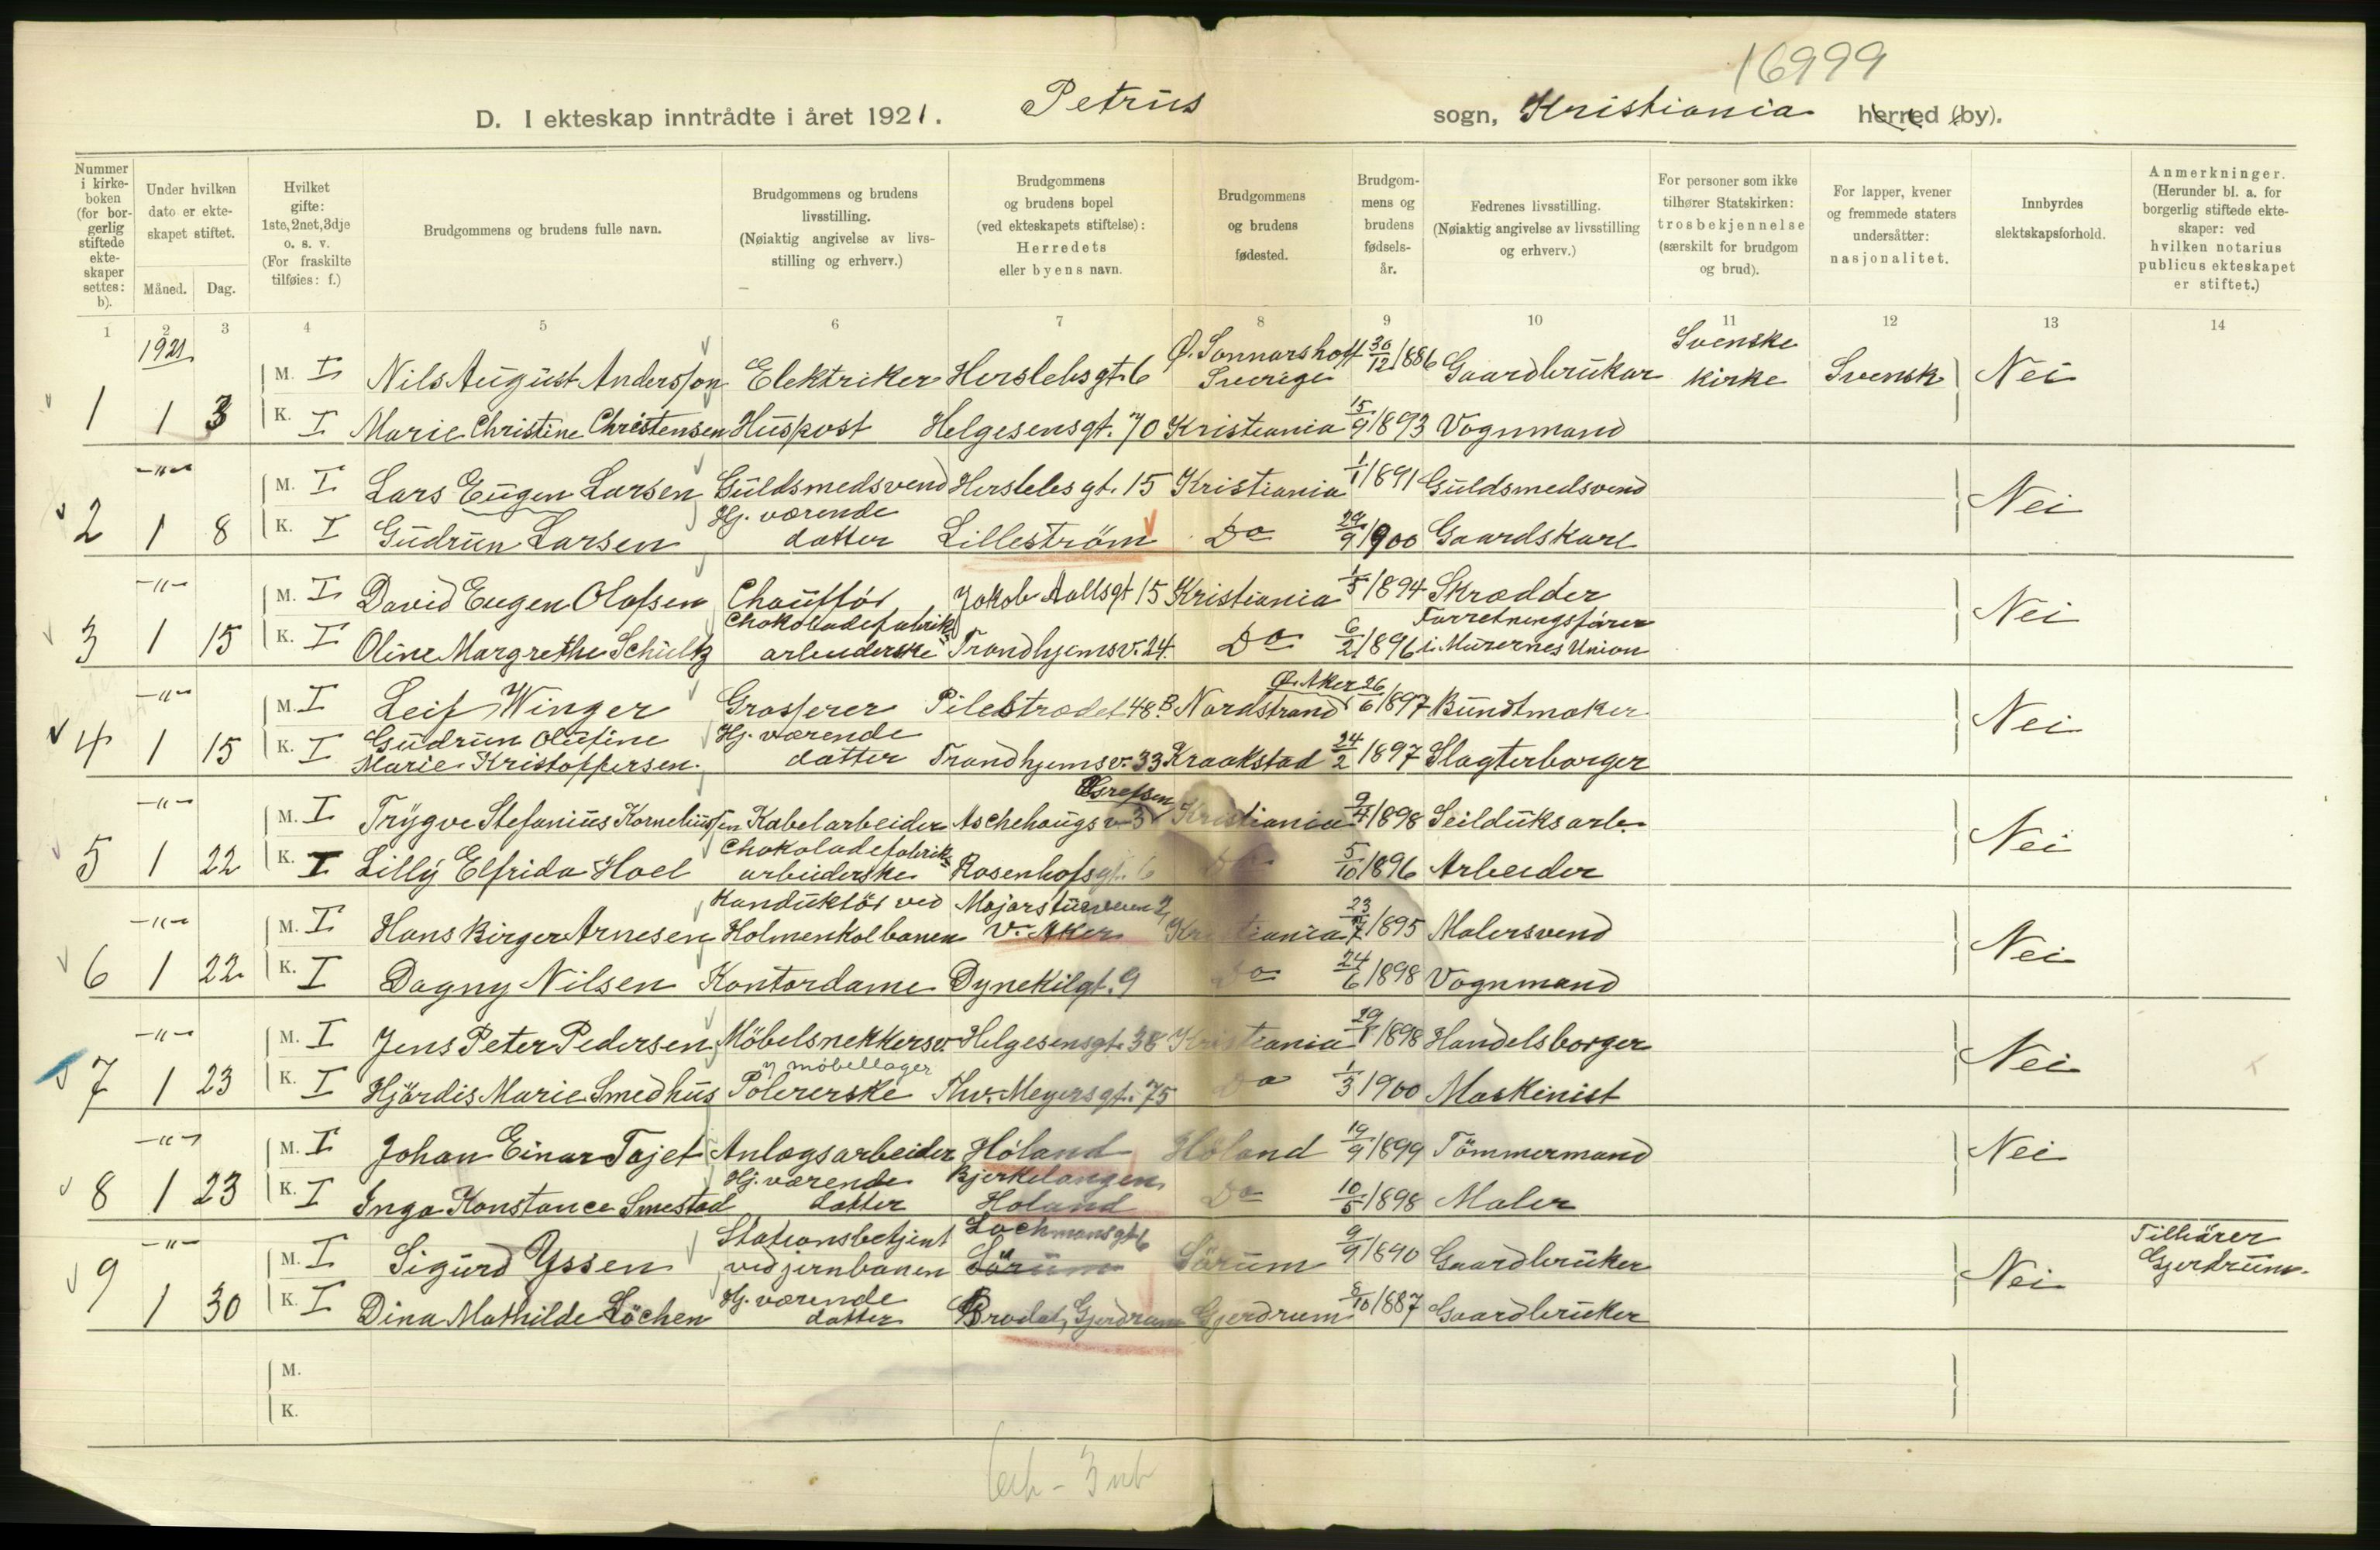 16999
D. I ekteskap inntrådte i året 1921. Petrus sogn, Kristiania herred (by).
Nummer i kirkeboken (for borgerlig stiftede ekteskaper settes: b).
Under hvilken dato er ekteskapet stiftet.
Måned. Dag.
Hvilket gifte: 1ste, 2net, 3dje o. s. v. (For fraskilte tilføies: f.)
Brudgommens og brudens fulle navn.
Brudgommens og brudens livsstilling. (Nøiaktig angivelse av livsstilling og erhverv.)
Brudgommens og brudens bopel (ved ekteskapets stiftelse): Herredets eller byens navn.
Brudgommens og brudens fødested.
Brudgommens og brudens fødselsår.
Fedrenes livsstilling. (Nøiaktig angivelse av livsstilling og erhverv.)
For personer som ikke tilhører Statskirken: trosbekjennelse (særskilt for brudgom og brud).
For lapper, kvener og fremmede staters undersåtter: nasjonalitet.
Innbyrdes slektskapsforhold.
Anmerkninger. (Herunder bl. a. for borgerlig stiftede ekteskaper: ved hvilken notarius publicus ekteskapet er stiftet.)
1 2 3 4 5 6 7 8 9 10 11 12 13 14
1921
M. I Nils August Andersson Elektriker Herslebsgt. 6 Ø. Sonnarshoff Sverige 30/12 1886 Gaardbruker Svenske kirke Svensk Nei
1 1 3 K. I Marie Christine Christensen Huspost Helgesensgt. 70 Kristiania 15/9 1893 Vognmand
-"- M. I Lars Eugen Larsen Guldsmedsvend Herslebsgt. 15 Kristiania 1/1 1891 Guldsmedsvend Nei
2 1 8 K. I Gudrun Larsen Hj. værende datter Lilleström Do 29/9 1900 Gaardskarl
-"- M. I David Eugen Olafsen Chaufför Jakob Aallsgt 15 Kristiania 1/5 1894 Skrædder Nei
3 1 15 K. I Oline Margrethe Schultz Chokoladefabrik arbeiderske Trondhjemsv. 24. Do 6/2 1896 Forretningsförer i Murernes Union
-"- M. I Leif Winger Grosserer Pilestrædet 48 B. Nordstrand Ø. Aker 26/6 1897 Bundtmaker Nei
4 1 15 K. I Gudrun Olufine Marie Kristoffersen. Hj. værende datter Trondhjemsv. 33 Kraakstad 24/2 1897 Slagterborger
-"- M. I Trygve Stefanius Korneliussen Kabelarbeider Aschehougs v 3 Grefsen Kristiania 9/4 1898 Seilduksarb. Nei
5 1 22 K. I Lilly Elfrida Hoel Chokoladefabrik arbeiderske Rosenhofsgt. 6 Do 5/10 1896 Arbeider
-"- M. I Hans Birger Arnesen Konduktör ved Holmenkolbanen Majorstuveien 2, V. Aker Kristiania 23/7 1895 Malersvend Nei
6 1 22 K. I Dagny Nilsen Kontordame Dynekilgt. 9 Do 24/6 1898 Vognmand
-"- M. I Jens Peter Pedersen Möbelsnekkersv. Helgesensgt. 38 Kristiania 29/1 1898 Handelsborger Nei
7 1 23 K. I Hjördis Marie Smedhus Polererske i möbellager Thv. Meyersgt. 75 Do 1/3 1900 Maskinist
-"- M. I Johan Einar Tajet Anlægsarbeider Höland Höland 19/9 1899 Tömmermand Nei
8 1 23 K. I Inga Konstance Smestad Hj. værende datter Bjerkelangen, Höland Do 10/5 1898 Maler
-"- M. I Sigurd Yssen Stationsbetjent ved jernbanen Lochmansgt 6 Sörum Sörum 9/9 1890 Gaardbruker Nei Tilhörer Gjerdrum.
9 1 30 K. I Dina Mathilde Löchen Hj. værende datter Brodal, Gjerdrum Gjerdrum 8/10 1887 Gaardbruker
M.
K.